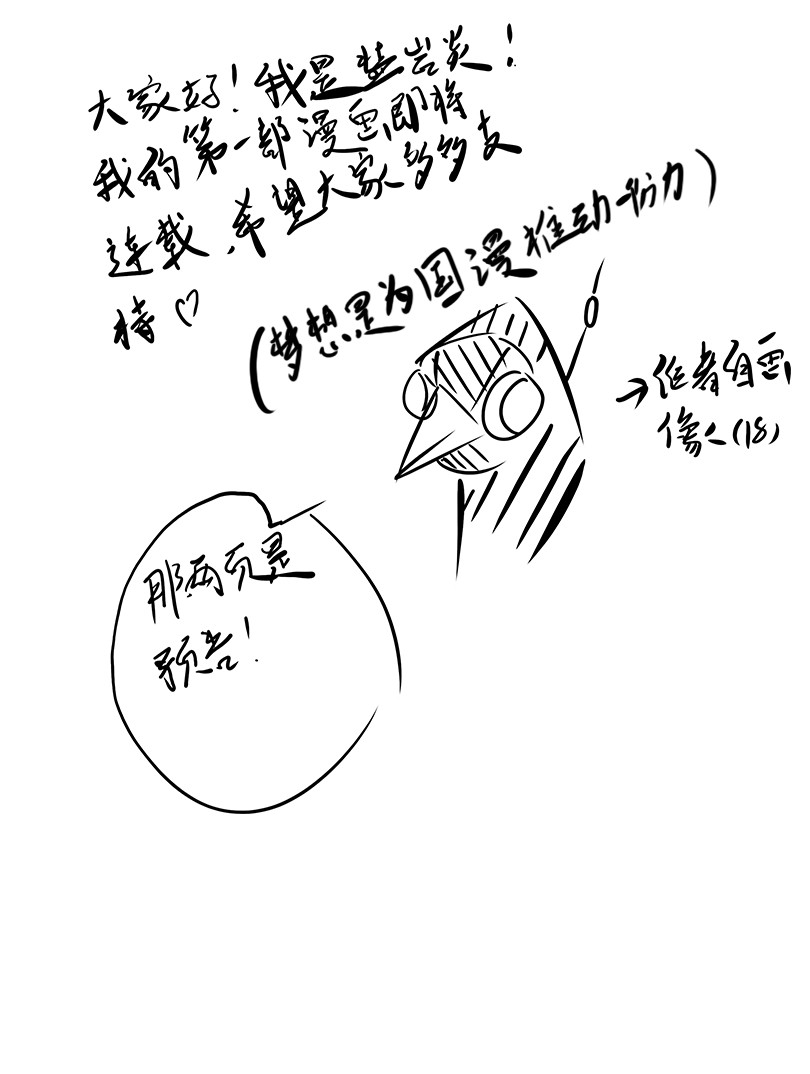 大家好！我是楚岩炎！
我的第一部漫画即将
连载，希望大家多多支
持♡
(梦想是为国漫推动一份力)
→作者自画
像(18)
那两页是
预告！